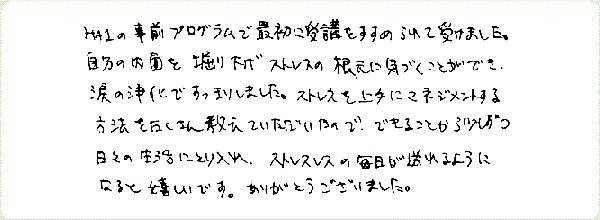 の事前プログラムで最初に受講をすすめられて受けました。
自分の内面を掘り下げストレスの根元に気づくことができ、
涙の浄化ですっきりしました。ストレスを上手にマネジメントする
方法をたくさん教えていただいたので、できることから少しずつ
日々の生活にとり入れ、ストレスレスの毎日が送れるように
なると嬉しいです。ありがとうございました。